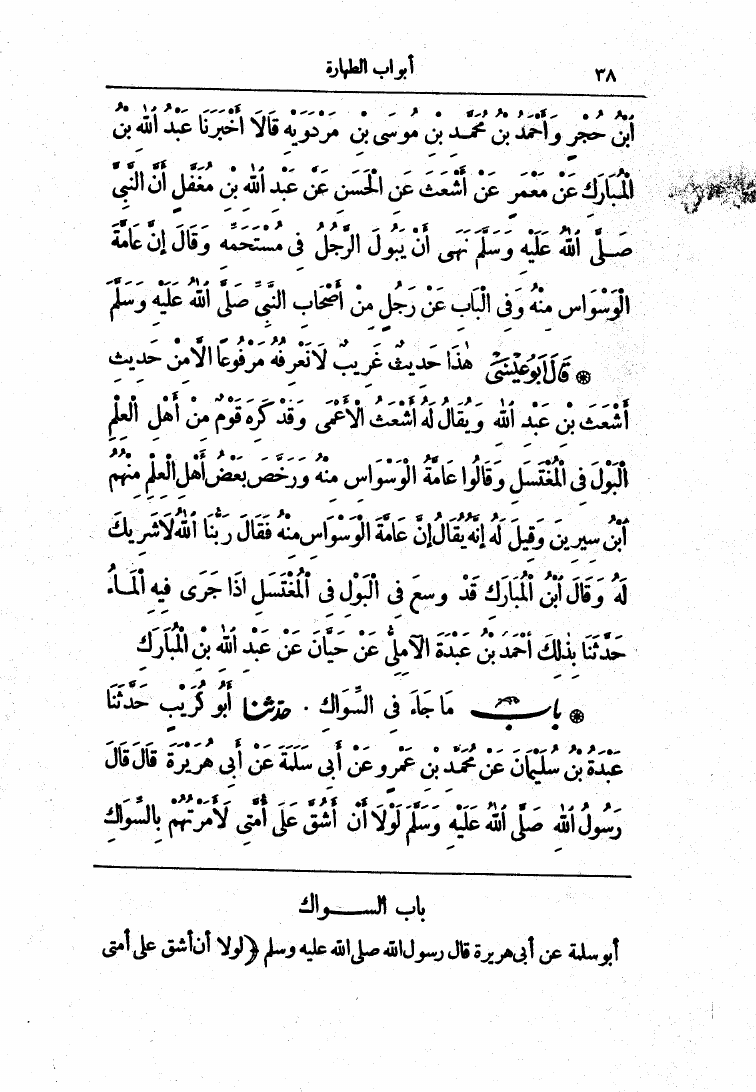 ٣٨
أبواب الطهارة
ٱبْنُ حُجْرٍ وَأَحْمَدُ بْنُ مُحَمَّدِ بْنِ مُوسَى بْنِ مَرْدَوَيْهِ قَالَا أَخْبَرَنَا عَبْدُ ٱللهِ بْنُ
الْمُبَارَكِ عَنْ مَعْمَرٍ عَنْ أَشْعَثَ عَنِ الْحَسَنِ عَنْ عَبْدِ ٱللهِ بْنِ مُغَفَّلٍ أَنَّ النَّبِيَّ
صَلَّى ٱللهُ عَلَيْهِ وَسَلَّمَ نَهَى أَنْ يَبُولَ الرَّجُلُ فِى مُسْتَحَمِّهِ وَقَالَ إِنَّ عَامَّةَ
الْوَسْوَاسِ مِنْهُ وَفِى الْبَابِ عَنْ رَجُلٍ مِنْ أَصْحَابِ النَّبِيِّ صَلَّى ٱللهُ عَلَيْهِ وَسَلَّمَ
❋ قَالَ أَبُو عِيسَى هٰذَا حَدِيثٌ غَرِيبٌ لَا نَعْرِفُهُ مَرْفُوعًا الَّا مِنْ حَدِيثِ
أَشْعَثَ بْنِ عَبْدِ ٱللهِ وَيُقَالُ لَهُ أَشْعَثُ الْأَعْمَى وَقَدْ كَرِهَ قَوْمٌ مِنْ أَهْلِ الْعِلْمِ
الْبَوْلَ فِى الْمُغْتَسَلِ وَقَالُوا عَامَّةُ الْوَسْوَاسِ مِنْهُ وَرَخَّصَ بَعْضُ أَهْلِ الْعِلْمِ مِنْهُمُ
ٱبْنُ سِيرِينَ وَقِيلَ لَهُ إِنَّهُ يُقَالُ إِنَّ عَامَّةَ الْوَسْوَاسِ مِنْهُ فَقَالَ رَبُّنَا ٱللهُ لَا شَرِيكَ
لَهُ وَقَالَ ٱبْنُ الْمُبَارَكِ قَدْ وسِعَ فِى الْبَوْلِ فِى الْمُغْتَسَلِ اذَا جَرَى فِيهِ الْمَاءُ
حَدَّثَنَا بِذٰلِكَ أَحْمَدُ بْنُ عَبْدَةَ الْآمِلِيُّ عَنْ حِبَّانَ عَنْ عَبْدِ ٱللهِ بْنِ الْمُبَارَكِ
❋ بَابُ مَا جَاءَ فِى السِّوَاكِ . حدثنا أَبُو كُرَيْبٍ حَدَّثَنَا
عَبْدَةُ بْنُ سُلَيْمَانَ عَنْ مُحَمَّدِ بْنِ عَمْرٍو عَنْ أَبِى سَلَمَةَ عَنْ أَبِى هُرَيْرَةَ قَالَ قَالَ
رَسُولُ ٱللهِ صَلَّى ٱللهُ عَلَيْهِ وَسَلَّمَ لَوْلَا أَنْ أَشُقَّ عَلَى أُمَّتِى لَأَمَرْتُهُمْ بِالسِّوَاكِ
باب السواك
أبو سلمة عن أبى هريرة قال رسول الله صلى الله عليه وسلم ﴿لولا أن أشق على أمتى